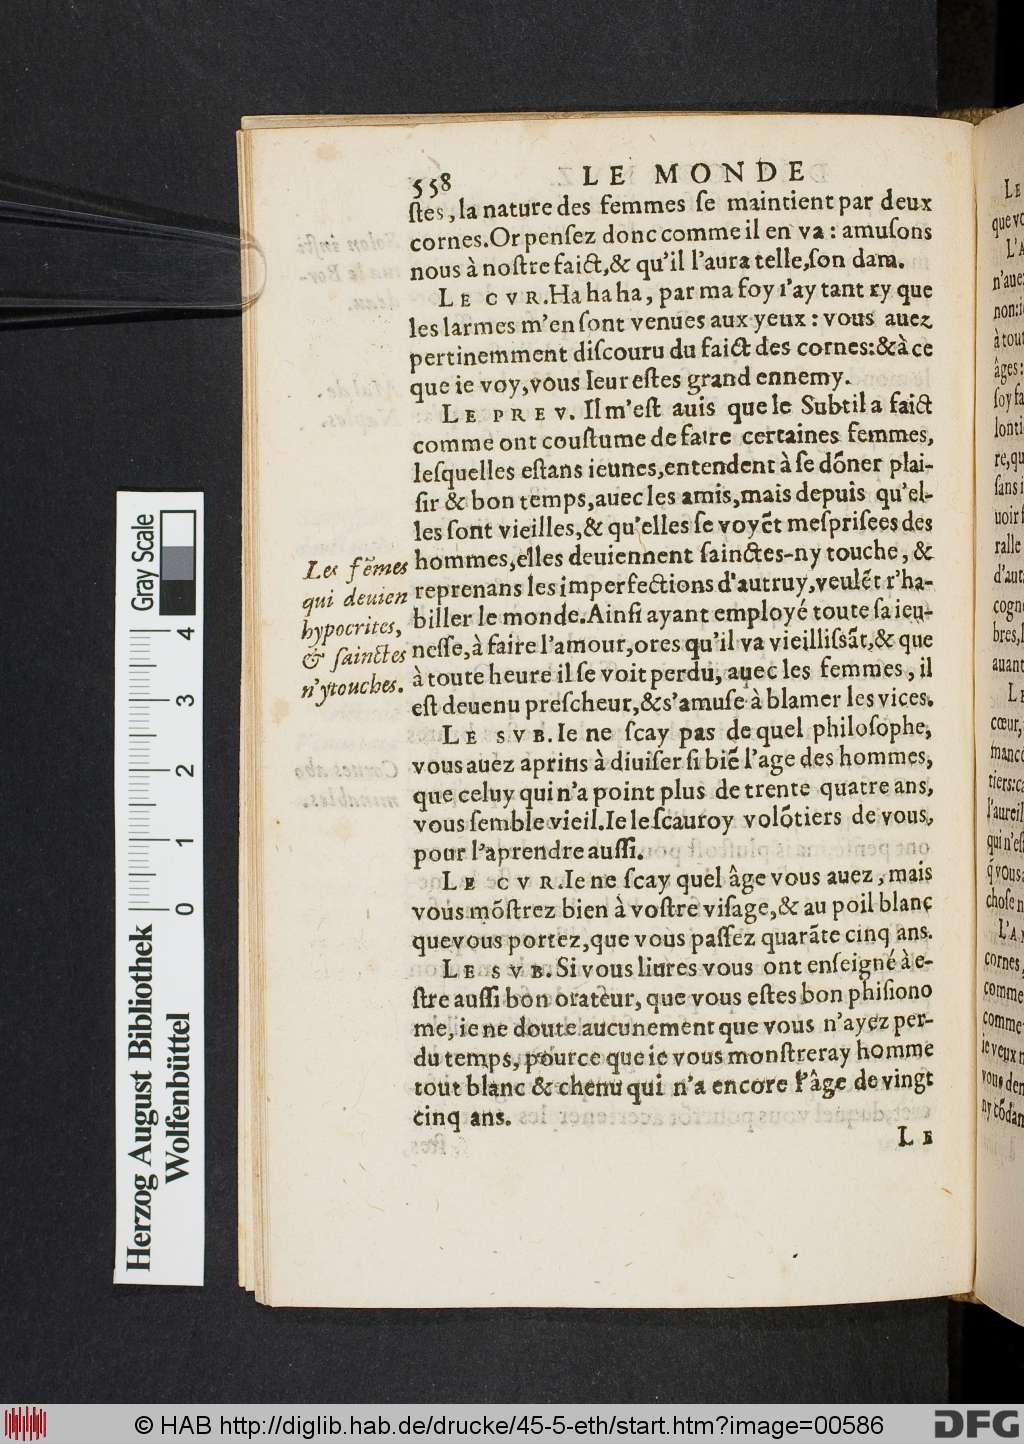 558 LE MONDE
ſtes, la nature des femmes ſe maintient par deux
cornes. Or penſez donc comme il en va : amuſons
nous à noſtre faict, & qu'il l'aura telle, ſon dam.
LE CVR. Ha ha ha, par ma foy i'ay tant ry que
les larmes m'en ſont venues aux yeux : vous auez
pertinemment diſcouru du faict des cornes: & à ce
que ie voy, vous leur eſtes grand ennemy.
LE PREV. Il m'eſt auis que le Subtil a faict
comme ont couſtume de faire certaines femmes,
leſquelles eſtans ieunes, entendent à ſe dõner plai-
ſir & bon temps, auec les amis, mais depuis qu'el-
les ſont vieilles, & qu'elles ſe voyẽt meſpriſees des
hommes, elles deuiennent ſainctes-ny touche, &
reprenans les imperfections d'autruy, veulẽt r'ha-
biller le monde. Ainſi ayant employé toute ſa ieu-
neſſe, à faire l'amour, ores qu'il va vieilliſsãt, & que
à toute heure il ſe voit perdu, auec les femmes, il
eſt deuenu preſcheur, & s'amuſe à blamer les vices.
Les fẽmes
qui deuien
hypocrites,
& ſainctes
n'ytouches.
LE SVB. Ie ne ſcay pas de quel philoſophe,
vous auez aprins à diuiſer ſi biẽ l'age des hommes,
que celuy qui n'a point plus de trente quatre ans,
vous ſemble vieil. Ie le ſcauroy volõtiers de vous,
pour l'aprendre auſſi.
LE CVR. Ie ne ſcay quel âge vous auez, mais
vous mõſtrez bien à voſtre viſage, & au poil blanc
que vous portez, que vous paſſez quarãte cinq ans.
LE SVB. Si vous liures vous ont enſeigné à e-
ſtre auſſi bon orateur, que vous eſtes bon phiſiono
me, ie ne doute aucunement que vous n'ayez per-
du temps, pource que ie vous monſtreray homme
tout blanc & chenu qui n'a encore l'âge de vingt
cinq ans.
LE
Gray Scale
0 1 2 3 4
Herzog August Bibliothek
Wolfenbüttel
© HAB http://diglib.hab.de/drucke/45-5-eth/start.htm?image=00586
DFG